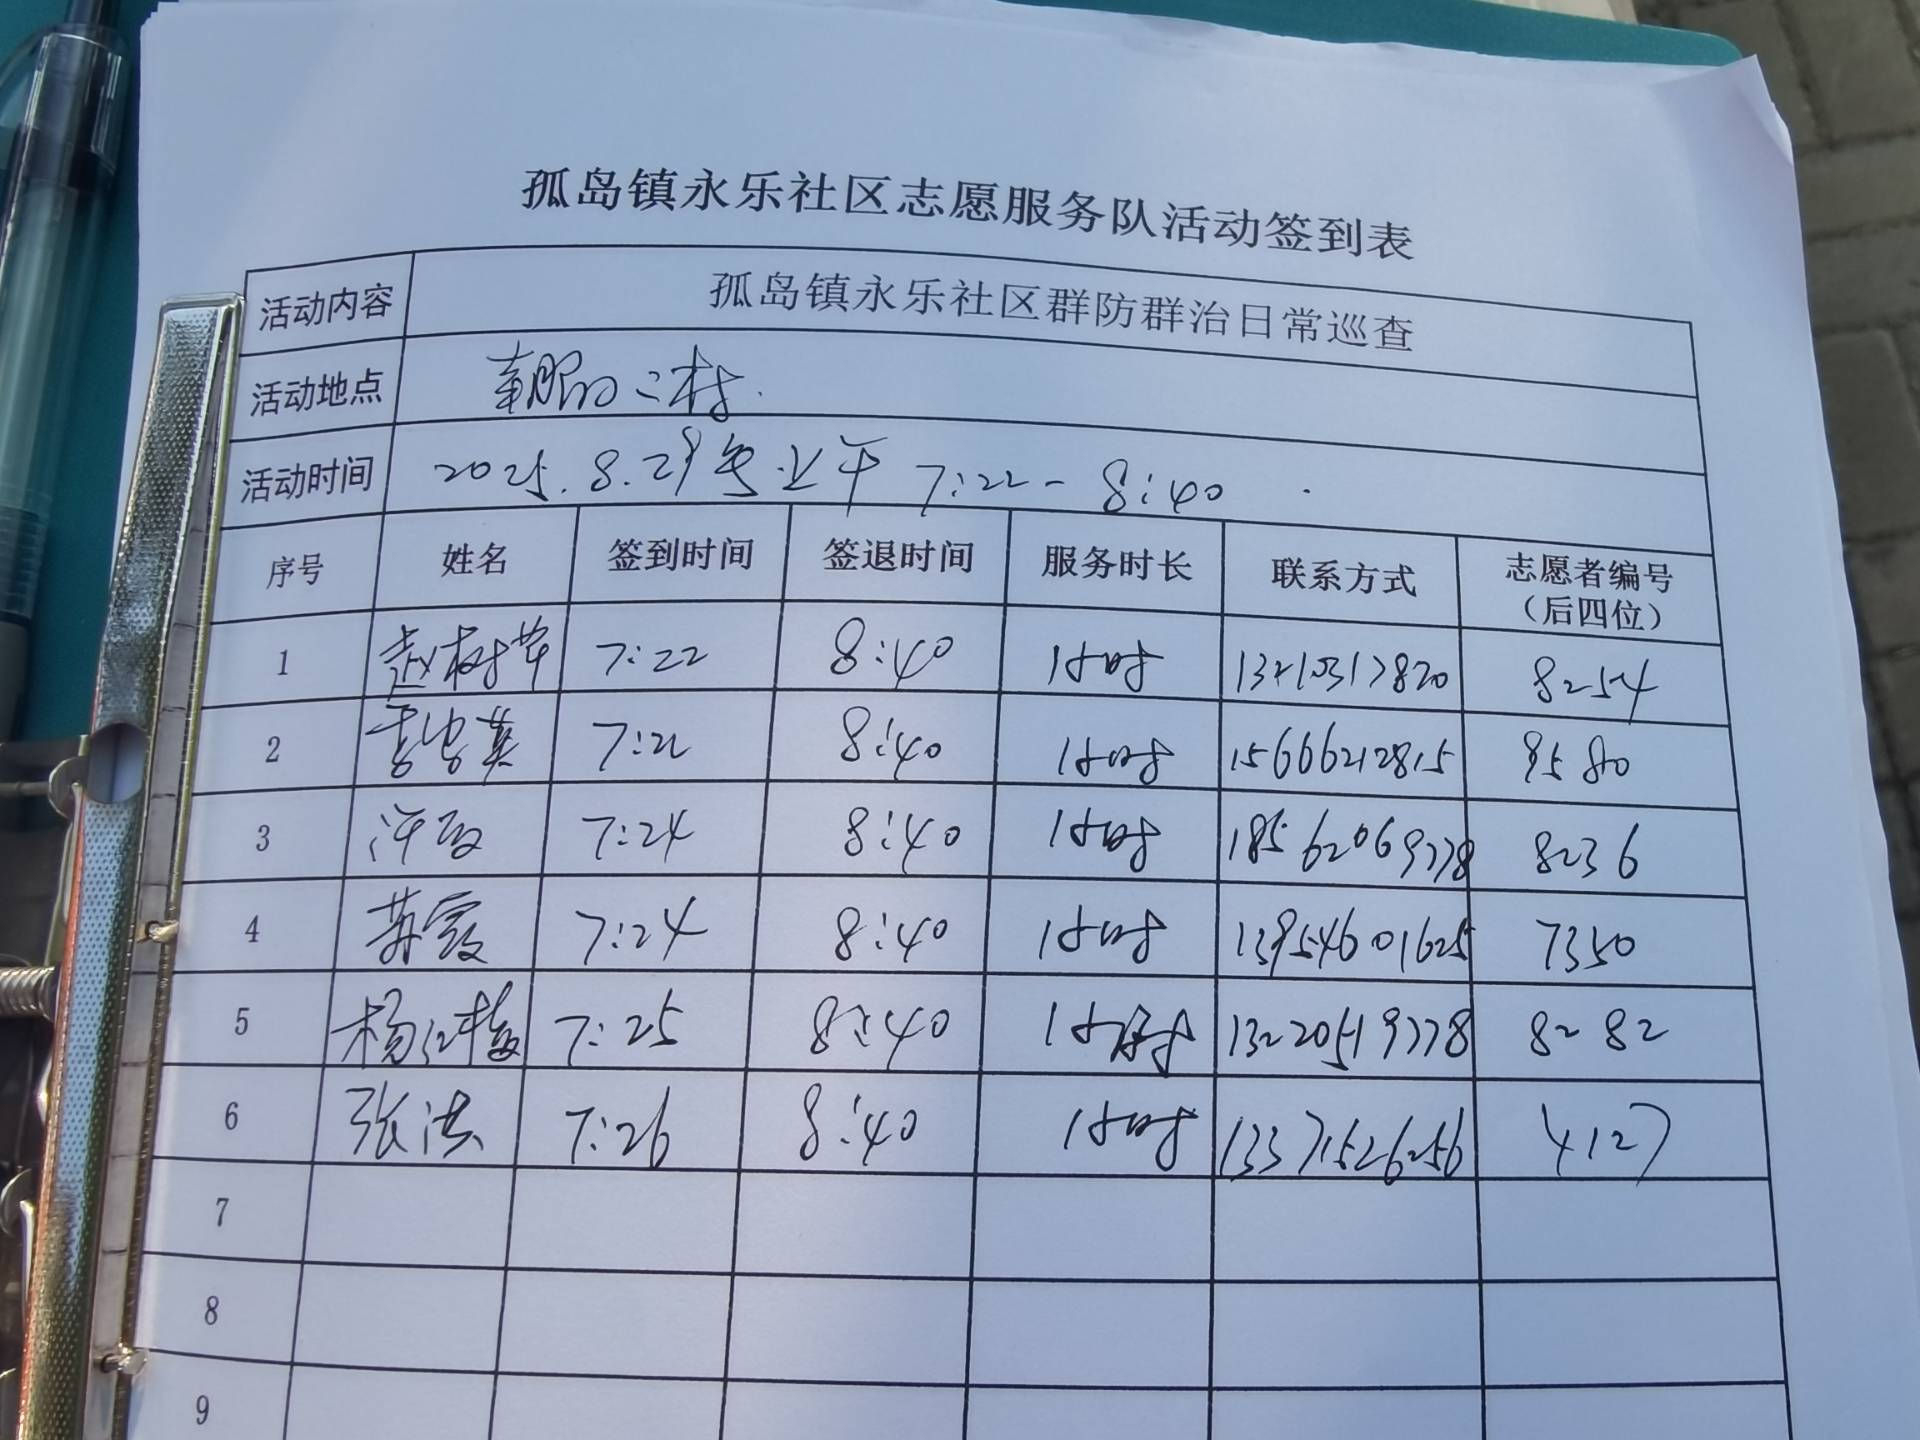 孤岛镇永乐社区志愿服务队活动签到表
活动内容 孤岛镇永乐社区群防群治日常巡查
活动地点 朝阳二村
活动时间 2025.8.29 上午 7:22-8:40
序号 姓名 签到时间 签退时间 服务时长 联系方式 志愿者编号
(后四位)
1 赵树苹 7:22 8:40 1小时 13210317820 8254
2 7:22 8:40 1小时 15666212815 8580
3 7:24 8:40 1小时 18562069778 8236
4 苏霞 7:24 8:40 1小时 13954601625 7350
5 杨红梅 7:25 8:40 1小时 13220519778 8282
6 张洪 7:26 8:40 1小时 13371526256 4127
7
8
9